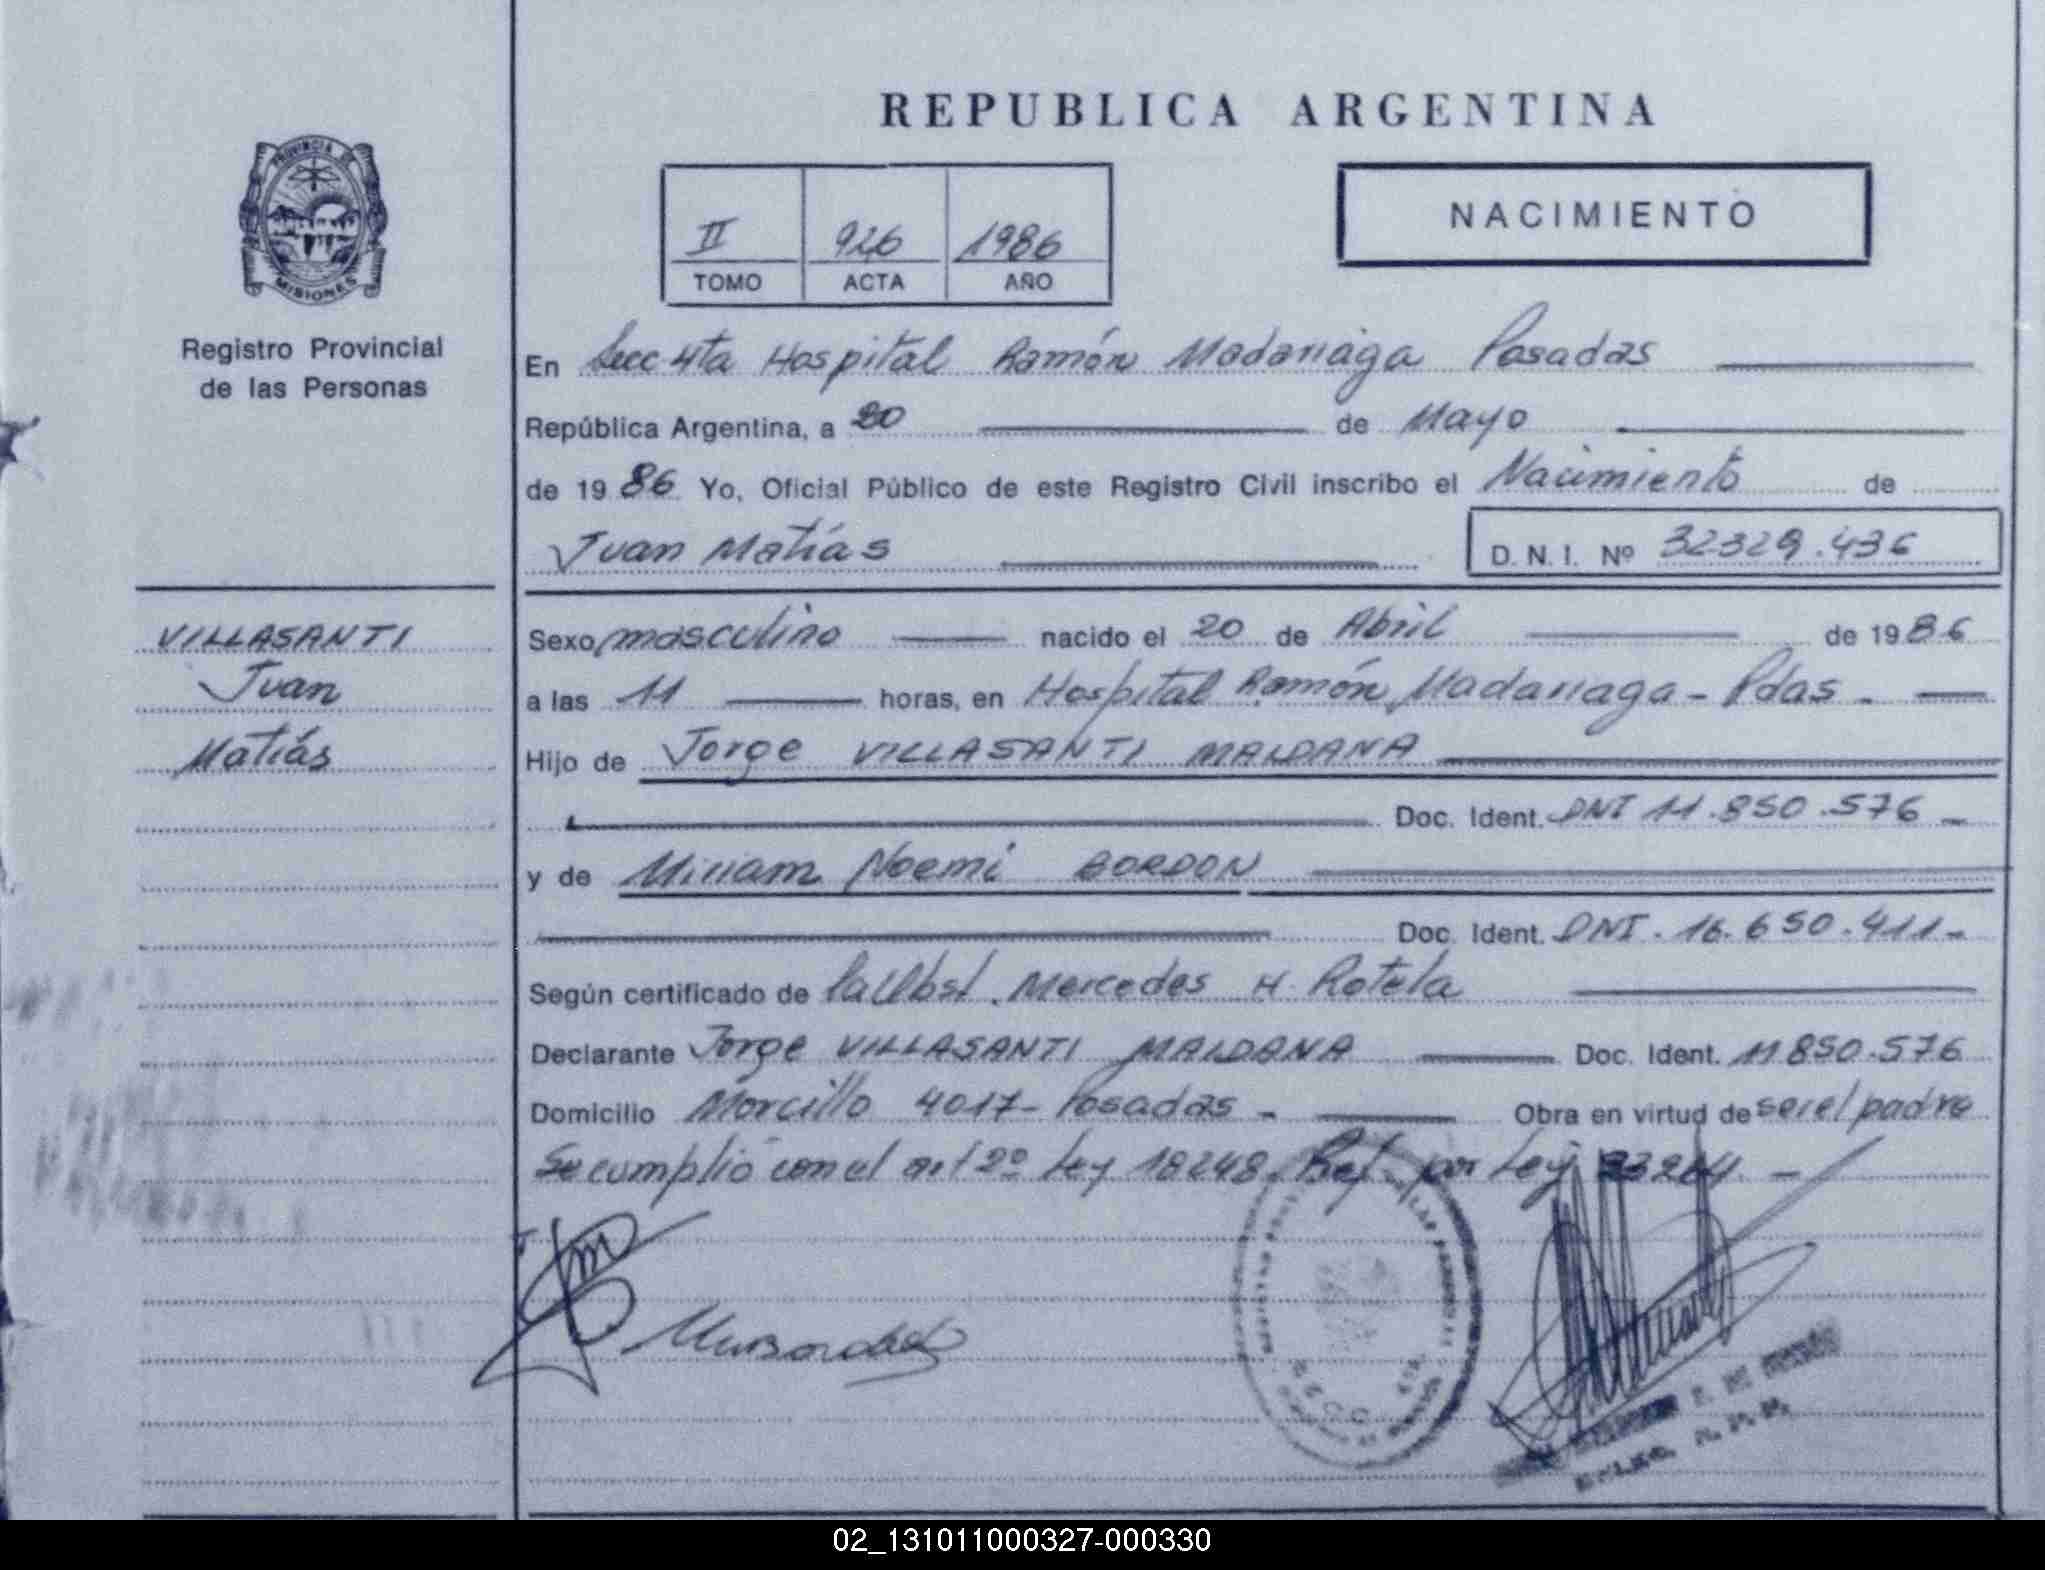 REPUBLICA ARGENTINA
PROVINCIA DE
MISIONES
Registro Provincial
de las Personas
II 926 1986
TOMO ACTA AÑO
NACIMIENTO
En Secc 4ta Hospital Ramón Madariaga Posadas
República Argentina, a 20 de Mayo
de 1986 Yo, Oficial Público de este Registro Civil inscribo el Nacimiento de
Juan Matías D. N. I. Nº 32329.436
VILLASANTI
Juan
Matías
Sexo masculino nacido el 20 de Abril de 1986
a las 11 horas, en Hospital Ramón Madariaga - Pdas -
Hijo de Jorge VILLASANTI MALDANA
Doc. Ident. DNI 11.850.576 -
y de Miriam Noemi BORDON
Doc. Ident. DNI. 16.650.411-
Según certificado de Mercedes H. Rotela
Declarante Jorge VILLASANTI MALDANA Doc. Ident. 11850.576
Domicilio Morcillo 4017- Posadas - Obra en virtud de ser el padre
Se cumplió con el art 2º Ley 18248. Ref. por Ley 23264. -
02_131011000327-000330